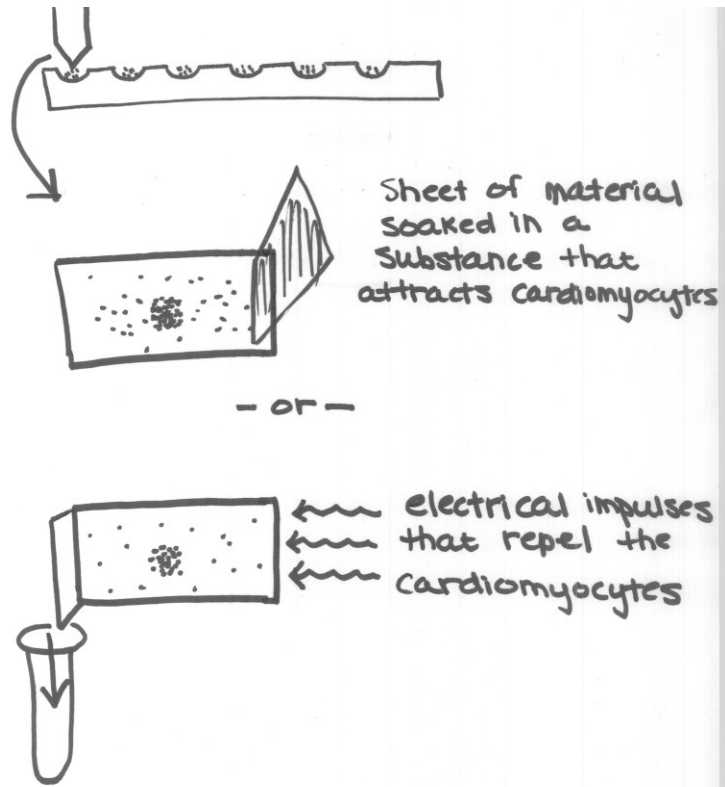 Sheet of material
soaked in a
substance that
attracts cardiomyocytes
- or -
electrical impulses
that repel the
cardiomyocytes